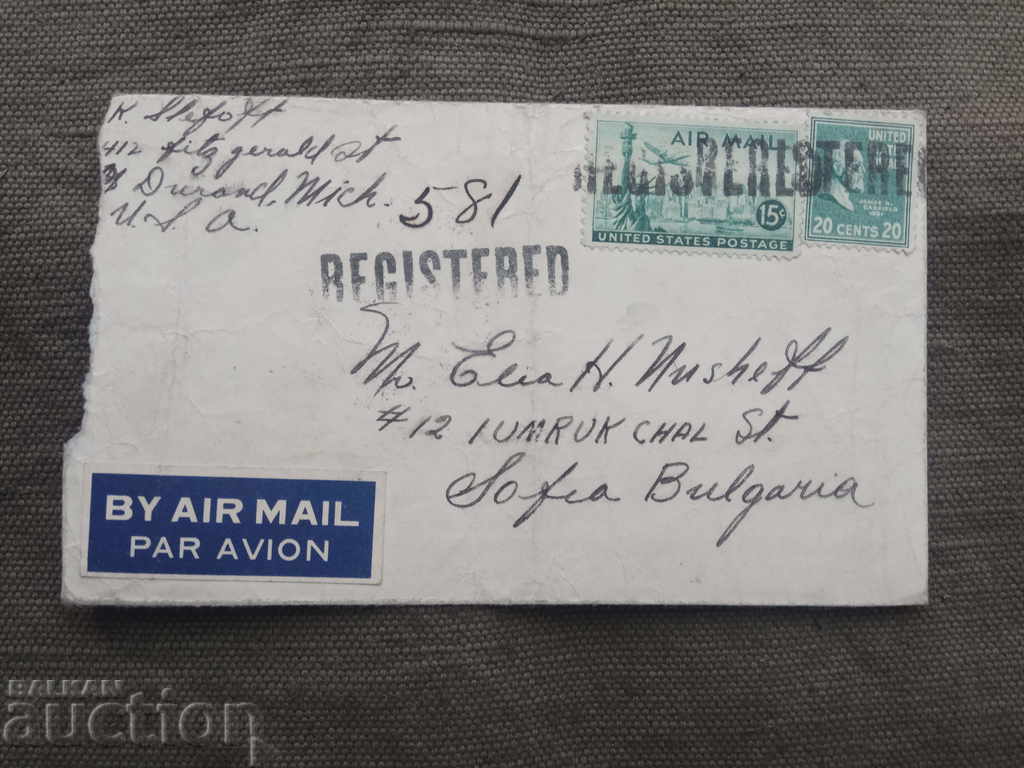 K. Slefoff
412 Fitzgerald St
Durand, Mich.
U.S.A.
581
REGISTERED
AIR MAIL
15¢
UNITED STATES POSTAGE
REGISTERED
REGISTERED
UNITED
JAMES A.
GARFIELD
1881
20 CENTS 20
Mr. Elia H. Nusheff
#12 IUMRUK CHAL St.
Sofia Bulgaria
BY AIR MAIL
PAR AVION
BALKAN
auction